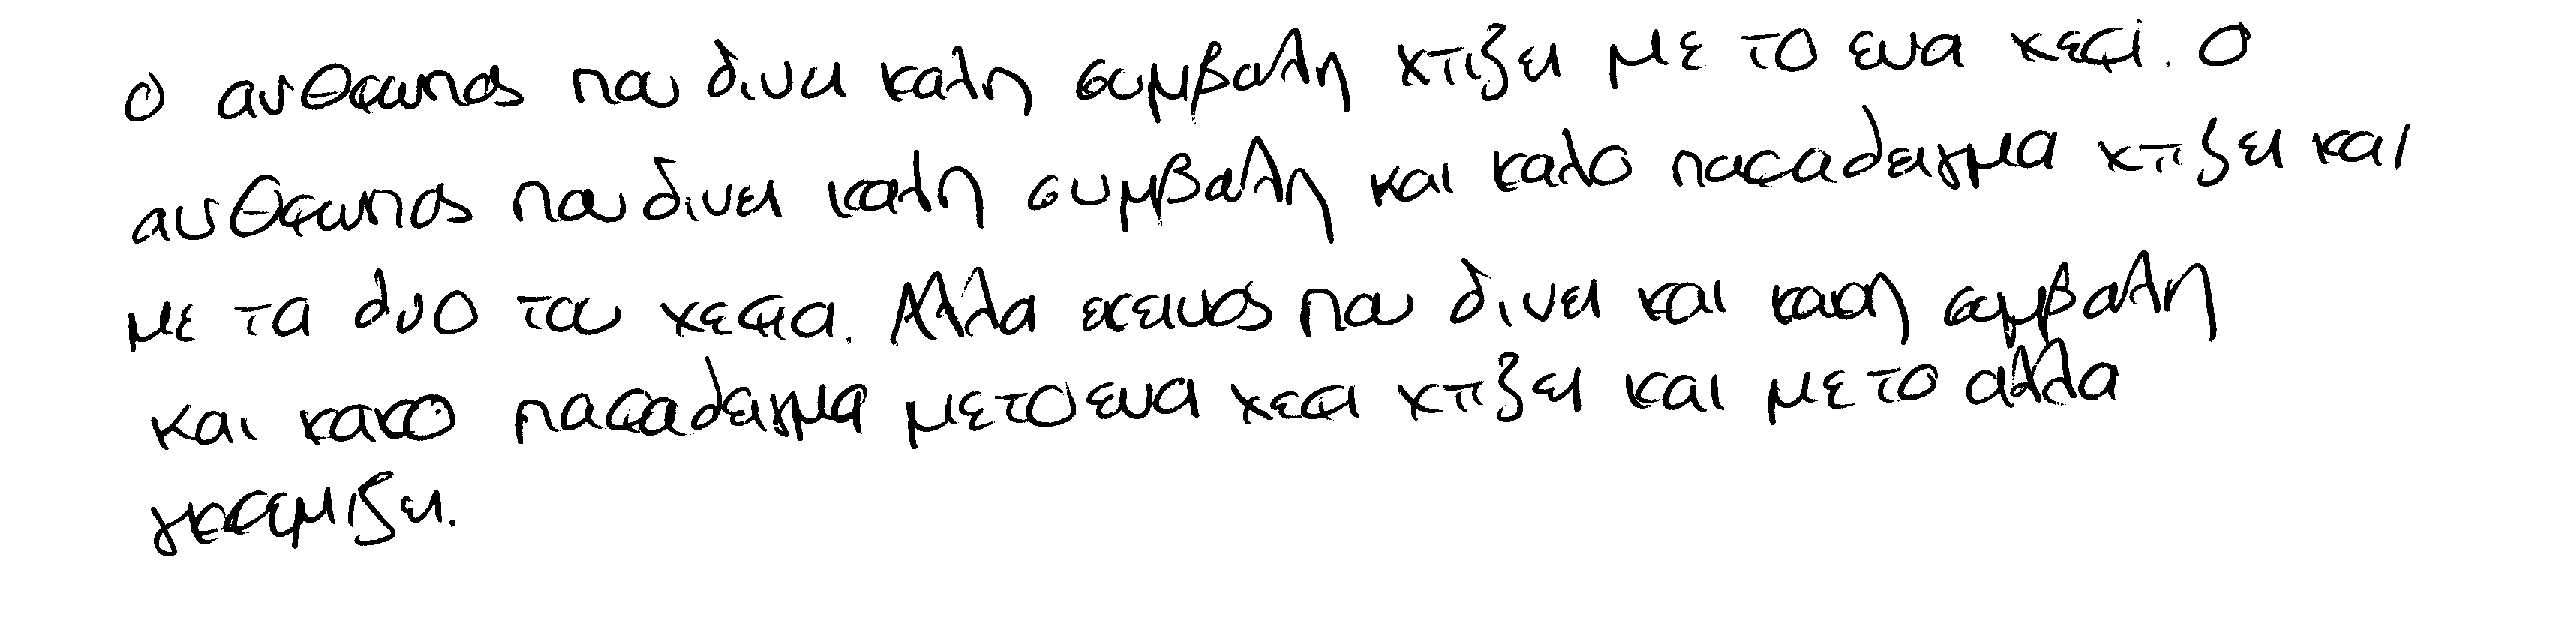 ο ανθρωπος που δινει καλη συμβαλη χτιζει με το ενα χερι. Ο
ανθρωπος που δινει καλη συμβαλη και καλο παραδειγμα χτιζει και
με τα δυο του χερια. Αλλα εκεινος που δινει και κακη συμβαλη
και κακο παραδειγμα με το ενα χερι χτιζει και με το αλλα
γκρεμιζει.